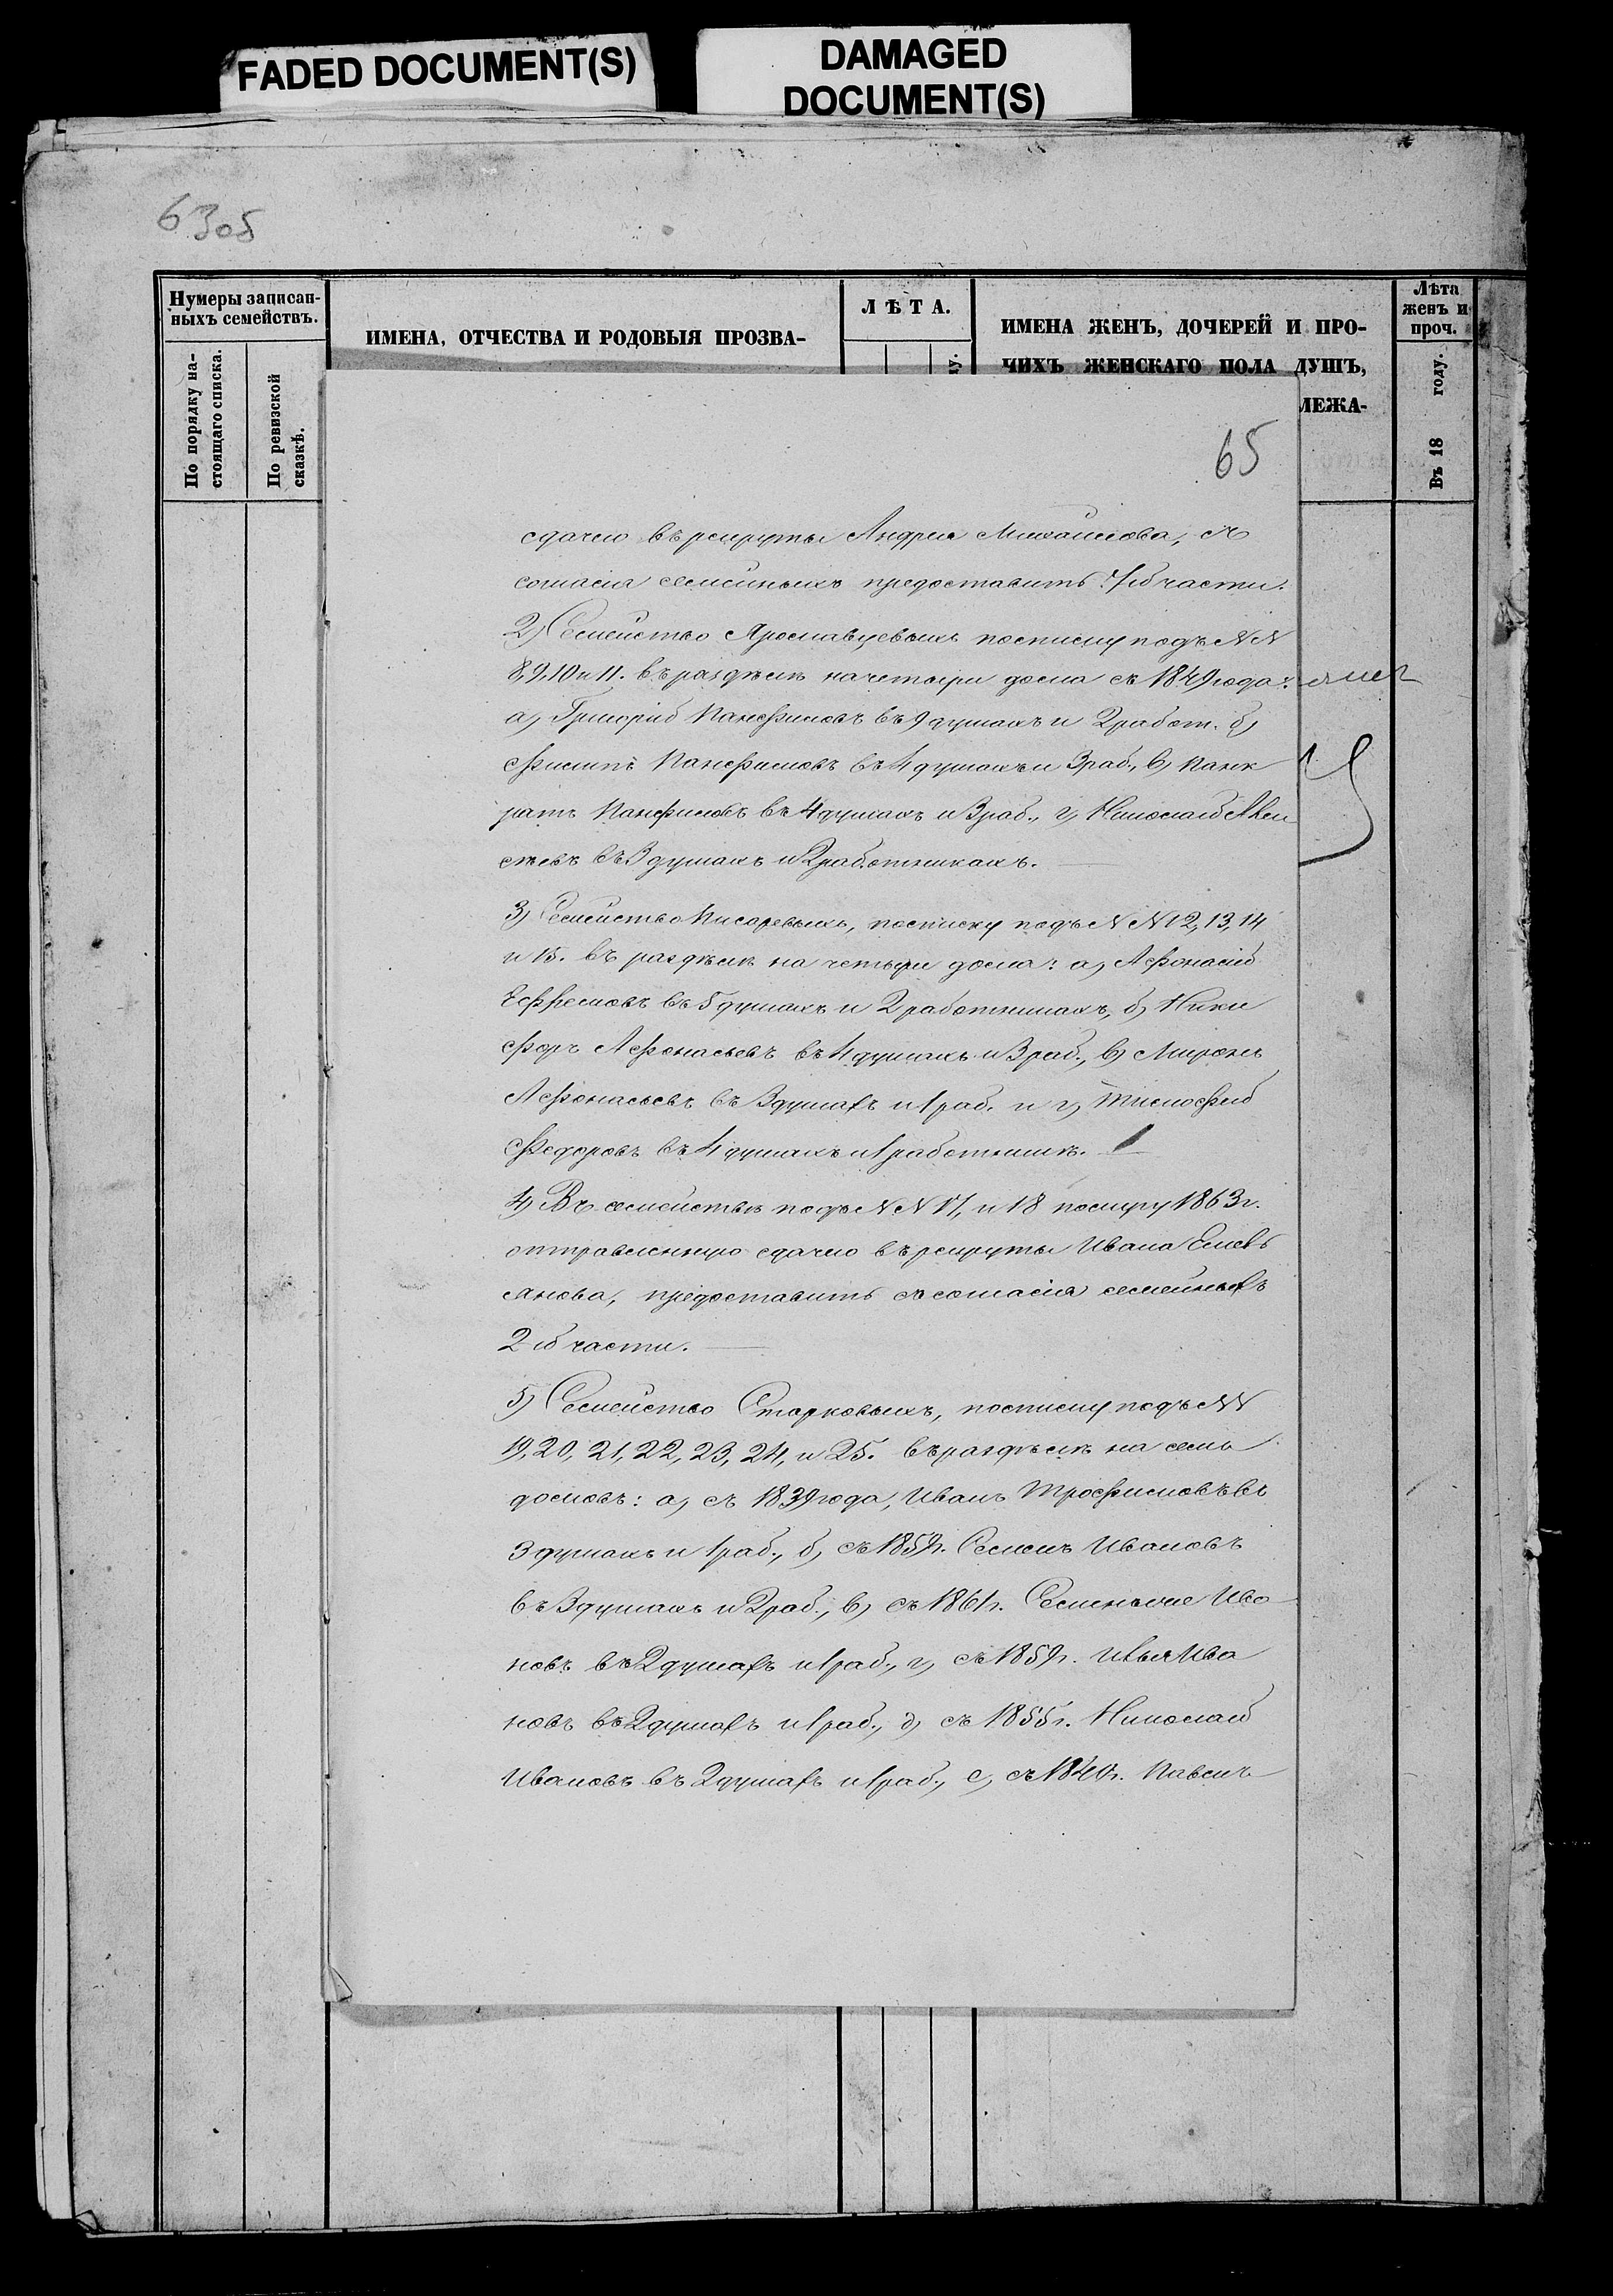 FADED DOCUMENT(S)
DAMAGED
DOCUMENT(S)
63об
Нумеры записан-
ныхъ семействъ.
По порядку на-
стоящаго списка.
По ревизской
сказкѣ.
ИМЕНА, ОТЧЕСТВА И РОДОВЫЯ ПРОЗВА-
ЛѢТА.
ИМЕНА ЖЕНЪ, ДОЧЕРЕЙ И ПРО-
ЧИХЪ ЖЕНСКАГО ПОЛА ДУШЪ,
ЛЕЖА-
Лѣта
женъ и
проч.
Въ 18 году.
65
сдачею въ рекруты Андрея Михайлова, съ
согласія семейныхъ предоставить части.
2) Семейство Ярославцевыхъ посписку подъ NN
8, 9, 10 и 11. въ раздѣлѣ на четыри дома съ 1849 года:
а) Григорій Панфиловъ въ 9 душахъ и 2 работ. б)
Филипъ Панфиловъ въ 4 душахъ и 3 раб., в) Панк
ратъ Панфиловъ въ 4 душахъ и 3 раб., г) Николай
въ 3 душахъ и 2 работникахъ.
3) Семейство Писаревыхъ, посписку подъ NN 12, 13, 14
и 15. въ раздѣлѣ на четыри дома: а) Афонасій
Ефремовъ въ 5 душахъ и 2 работникахъ, б) Ники
форъ Афонасьевъ въ 4 душахъ и 3 раб., в) Миронъ
Афонасьевъ въ 3 душахъ и 1 раб. и г) Тимофей
Федоровъ въ 4 душахъ и 1 работникъ.
4) Въ семействѣ подъ NN 17, и 18 1863 г.
отправленную сдачею въ рекруты Ивана Емель
янова, предоставить съ согласія семейныхъ
2й части.
5) Семейство Старковыхъ, посписку подъ NN
19, 20, 21, 22, 23, 24, и 25. въ раздѣлѣ на семь
домовъ: а) съ 1839 года, Иванъ Трофимовъ въ
3 душахъ и 1 раб., б) съ 1859 г. Семенъ Ивановъ
въ 3 душахъ и 2 раб., в) съ 1861 г. Ива
новъ въ 2 душахъ и 1 раб., г) съ 1859 г. Илья Ива
новъ въ 2 душахъ и 1 раб., д) съ 1855 г. Николай
Ивановъ въ 2 душахъ и 1 раб., е) съ 1840 г. Павелъ